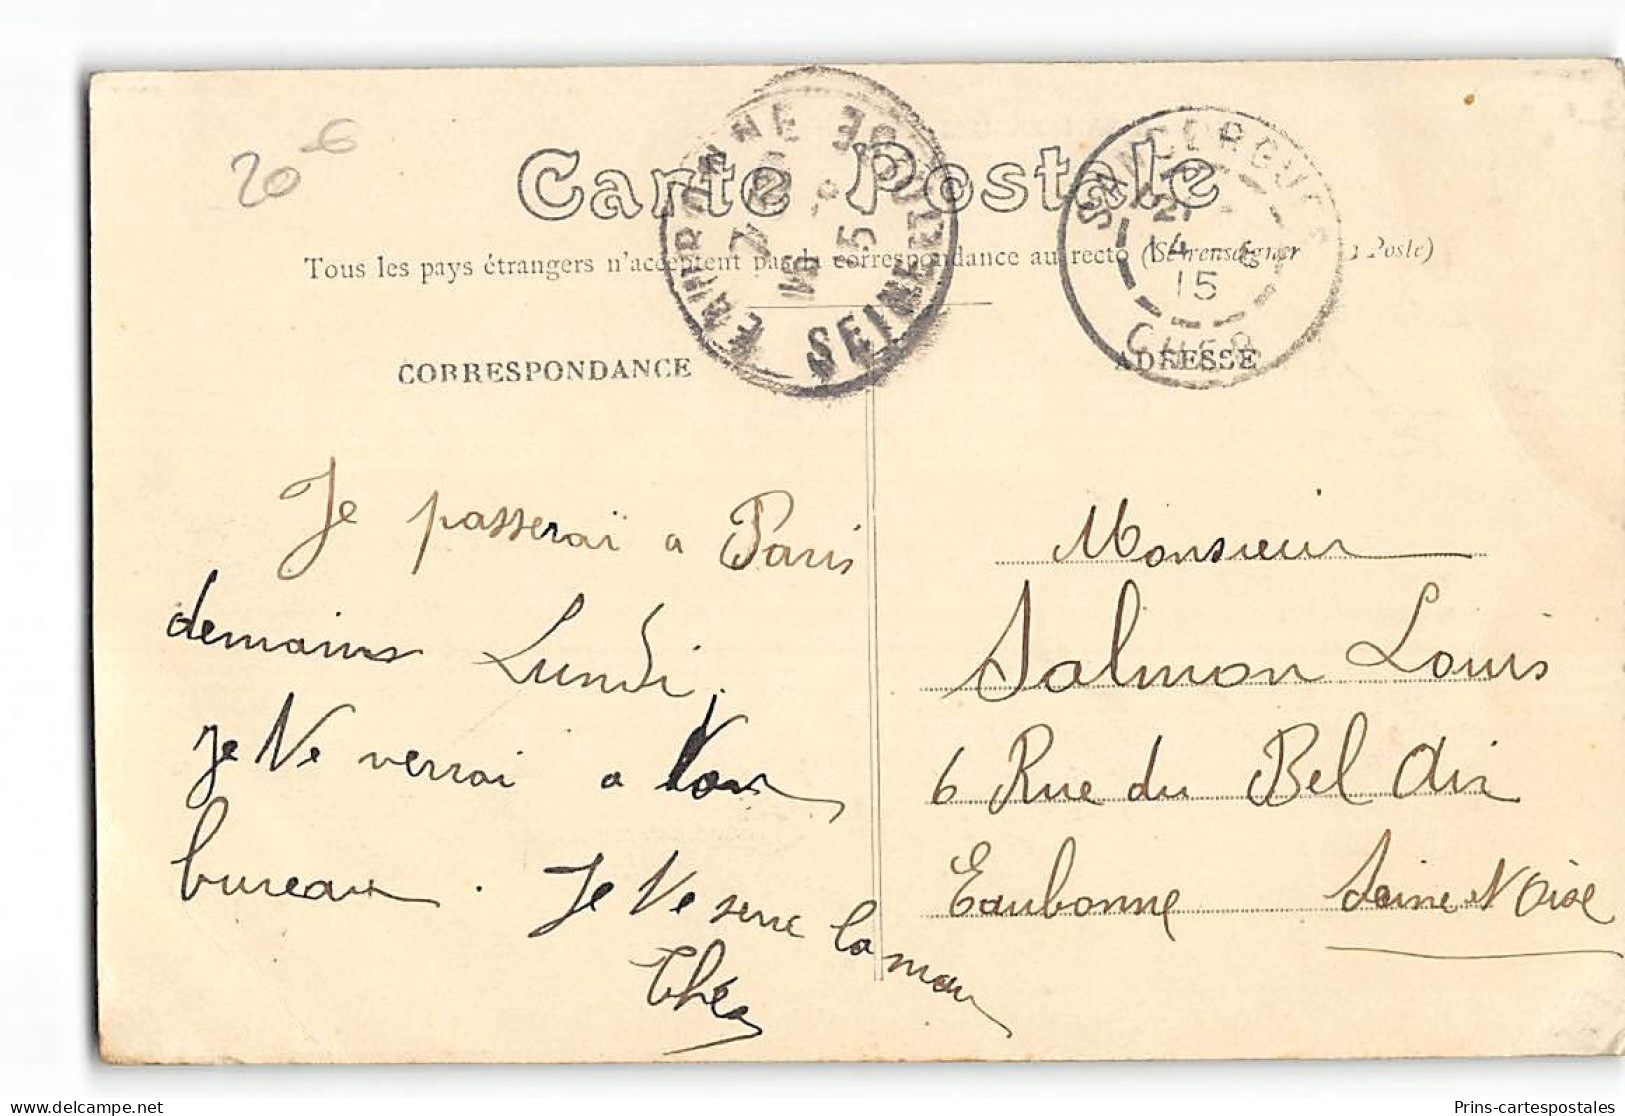 20-6
Carte Postale
Tous les pays étrangers n'acceptent pas la correspondance au recto (Se renseigner Poste)
ERMONT-EAUBONNE
SEINE-ET-OISE
SANCERGUES
21
14 - 6
15
CHER
CORRESPONDANCE
ADRESSE
Je passerai a Paris
demains Lundi.
je Ve verrai a
bureau. Je Ve serre la main
Théo
Monsieur
Salmon Louis
6 Rue du Bel Air
Eaubonne Seine et Oise
Prins-cartespostales